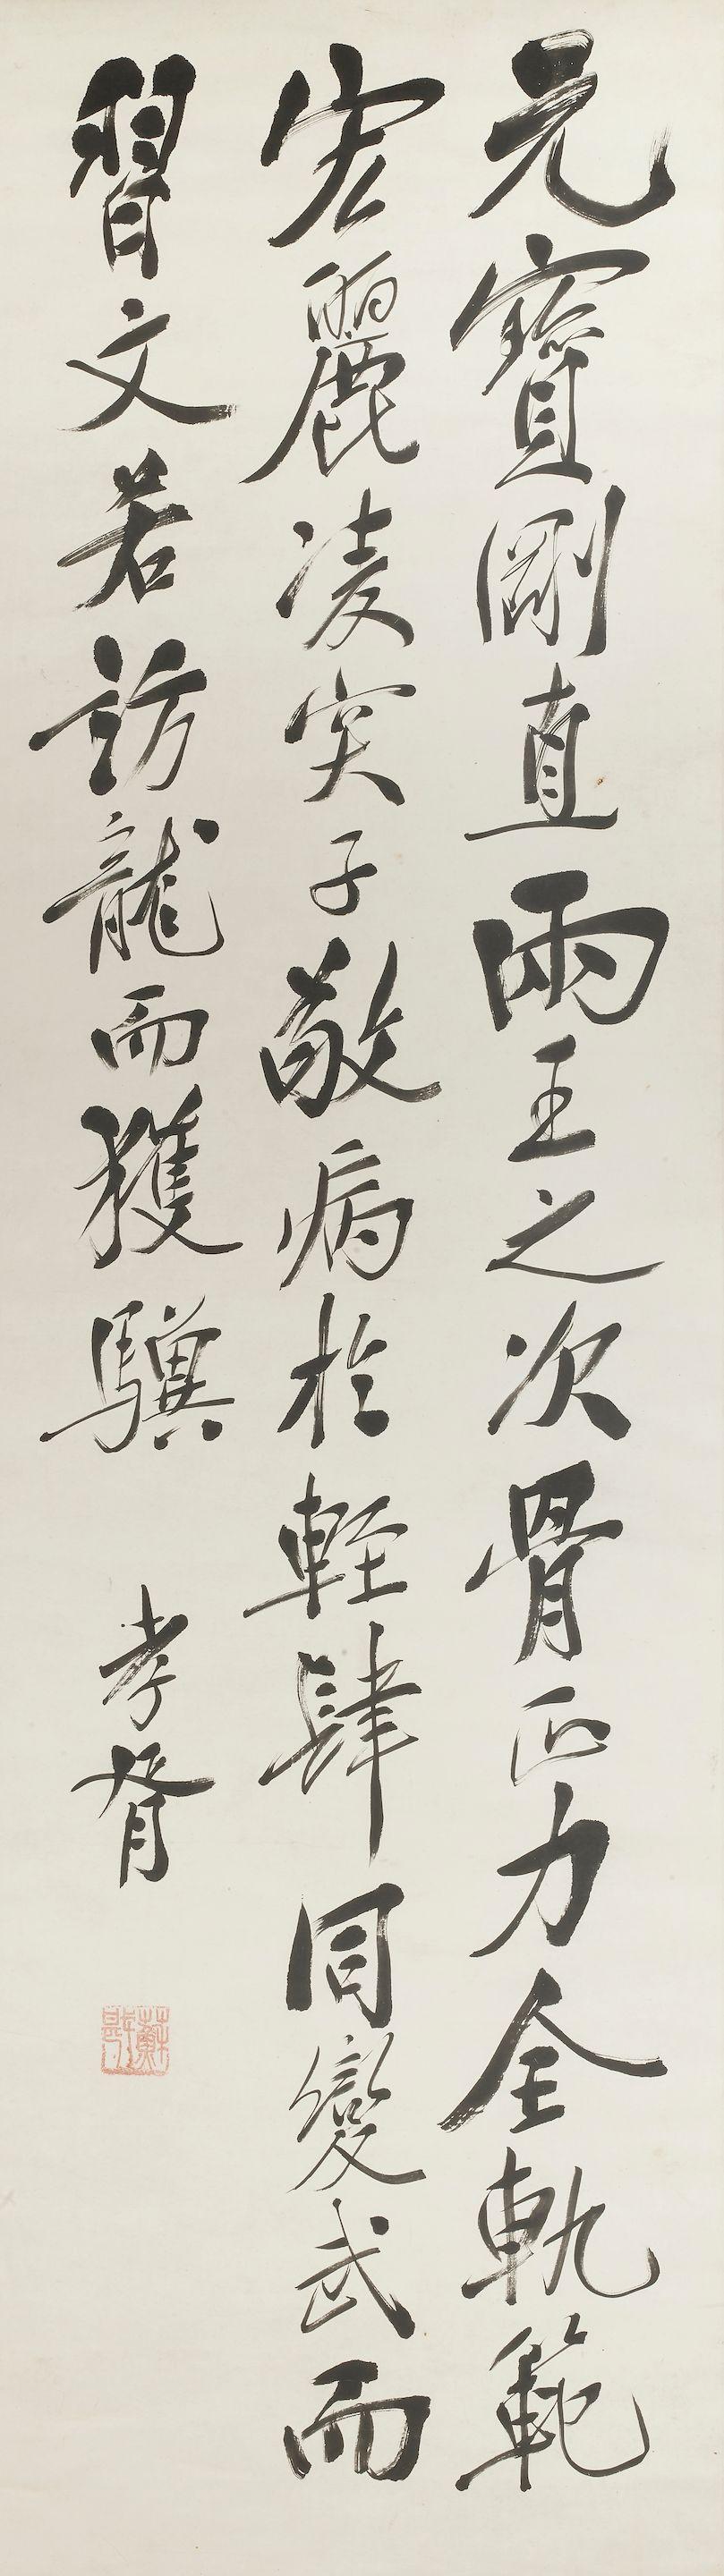 元寶剛直兩王之次骨正力全軌範
宏麗淩突子敬病於輕肆同變武而
習文若訪龍而獲驥
孝胥
蘇戡